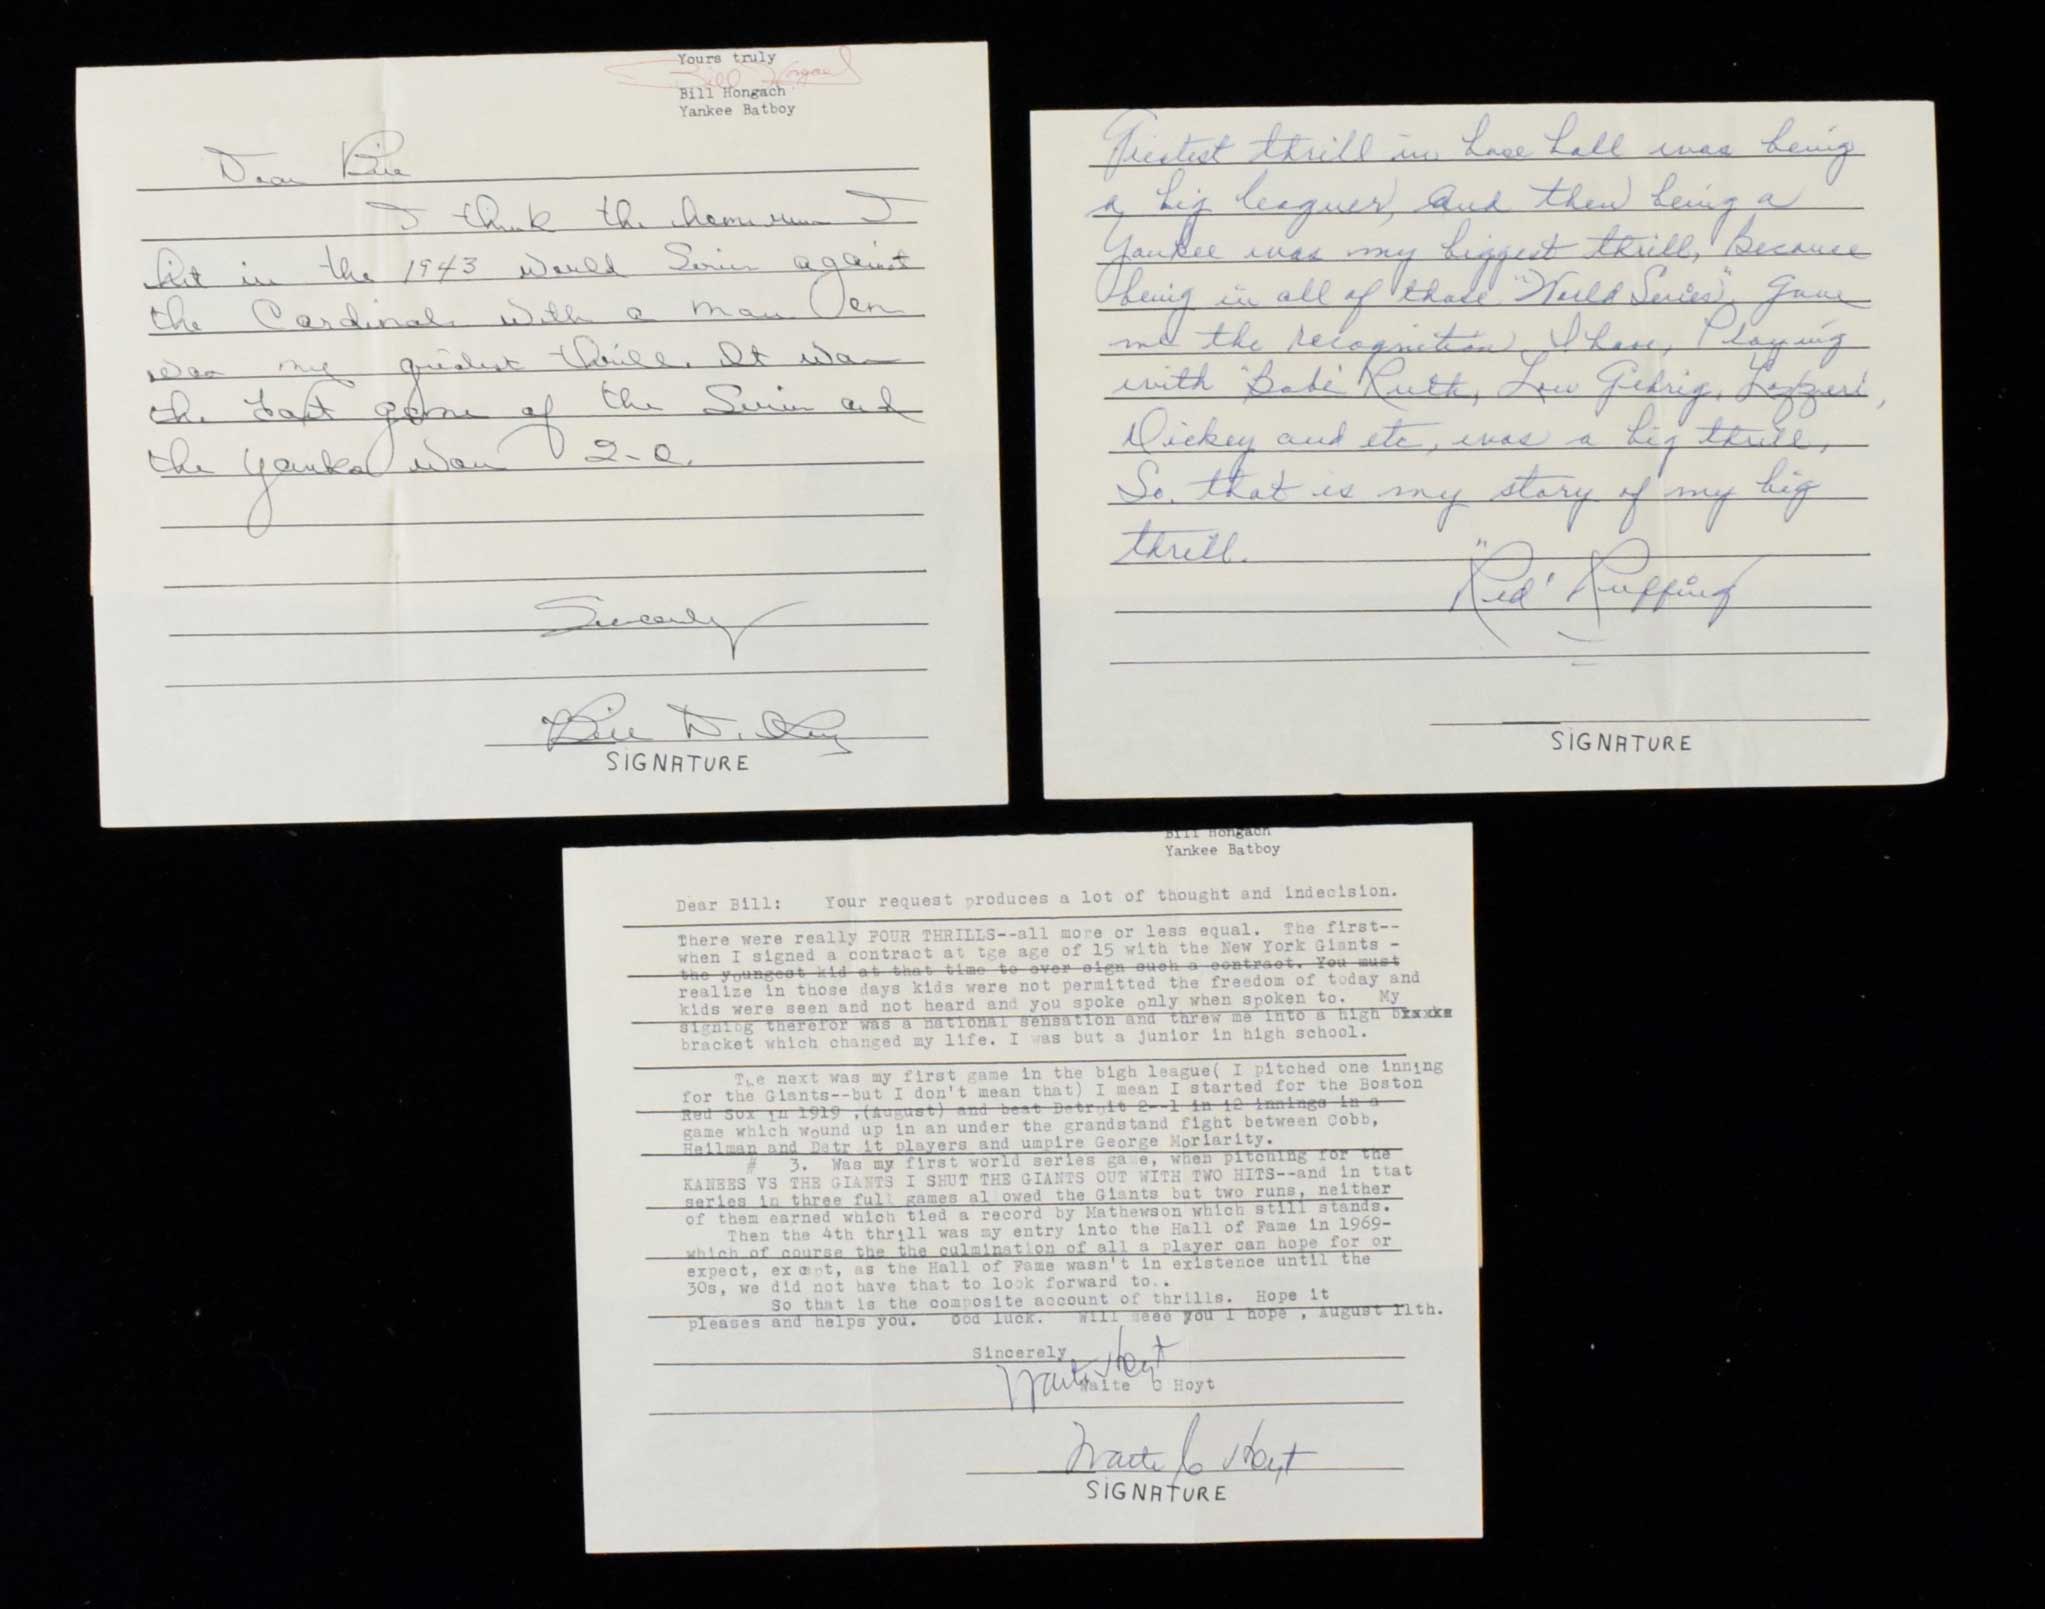 Yours truly
Bill Hongach
Bill Hongach
Yankee Batboy
Dear Bill
I think the home run I
hit in the 1943 World Series against
the Cardinals with a man on
was my greatest thrill. It was
the last game of the Series and
the Yanks won 2-0.
Sincerely
Bill Dickey
SIGNATURE
Greatest thrill in base ball was being
a big leaguer, and then being a
Yankee was my biggest thrill, Because
being in all of those "World Series", gave
me the recognition I have, Playing
with "Babe" Ruth, Lou Gehrig, Lazzeri,
Dickey and etc, was a big thrill,
So, that is my story of my big
thrill.
"Red" Ruffing
SIGNATURE
Bill Hongach
Yankee Batboy
Dear Bill: Your request produces a lot of thought and indecision.
There were really FOUR THRILLS--all more or less equal. The first--
when I signed a contract at tge age of 15 with the New York Giants -
the youngest kid at that time to ever sign such a contract. You must
realize in those days kids were not permitted the freedom of today and
kids were seen and not heard and you spoke only when spoken to. My
signibg therefor was a national sensation and threw me into a high
bracket which changed my life. I was but a junior in high school.
The next was my first game in the bigh league( I pitched one inning
for the Giants--but I don't mean that) I mean I started for the Boston
Red Sox in 1919 ,(August) and beat Detroit 2--1 in 12 innings in a
game which wound up in an under the grandstand fight between Cobb,
Heilman and Detr it players and umpire George Moriarity.
# 3. Was my first world series game, when pitching for the
KANEES VS THE GIANTS I SHUT THE GIANTS OUT WITH TWO HITS--and in ttat
series in three full games allowed the Giants but two runs, neither
of them earned which tied a record by Mathewson which still stands.
Then the 4th thrill was my entry into the Hall of Fame in 1969-
which of course the the culmination of all a player can hope for or
expect, except, as the Hall of Fame wasn't in existence until the
30s, we did not have that to look forward to..
So that is the composite account of thrills. Hope it
pleases and helps you. ood luck. Will seee you I hope , August 11th.
Sincerely
Waite Hoyt
Waite C Hoyt
Waite C Hoyt
SIGNATURE